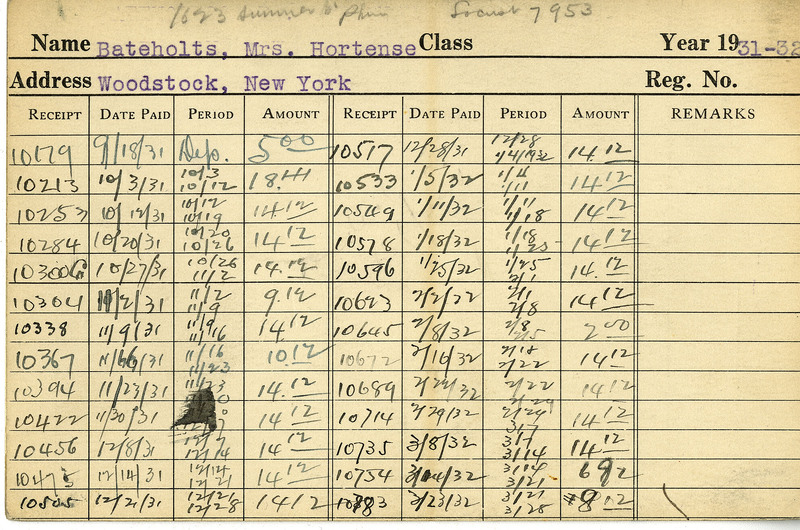 1623 Summer St Phila Locust 7953
Name Bateholts, Mrs. Hortense Class Year 1931-32
Address Woodstock, New York Reg. No.
RECEIPT DATE PAID PERIOD AMOUNT RECEIPT DATE PAID PERIOD AMOUNT REMARKS
10179 9/18/31 Dep. 5.00 10517 12/28/31 12/28 1/4/1932 14.12
10213 10/3/31 10/3 10/12 18.41 10533 1/5/32 1/4 1/11 14.12
10253 10/12/31 10/12 10/19 14.12 10549 1/11/32 1/11 1/18 14.12
10284 10/20/31 10/20 10/26 14.12 10578 1/18/32 1/18 1/25 14.12
10300 10/27/31 10/26 11/2 14.12 10596 1/25/32 1/25 2/1 14.12
10304 11/2/31 11/2 11/9 9.12 10623 2/2/22 2/1 2/8 14.12
10338 11/9/31 11/9 11/16 14.12 10645 2/8/32 2/8 2/15 2.00
10367 11/16/31 11/16 11/23 10.12 10672 2/16/32 2/18 2/22 14.12
10394 11/23/31 11/23 14.12 10689 2/24/32 2/22 2/29 14.12
10422 11/30/31 14.12 10714 2/29/32 2/29 3/7 14.12
10456 12/8/31 12/7 12/14 14.12 10735 3/8/32 3/7 3/14 14.12
10475 12/14/31 12/14 12/21 14.12 10754 3/14/32 3/14 3/21 692
10505 12/21/31 12/21 12/28 14.12 3/23/32 3/21 3/28 8.12